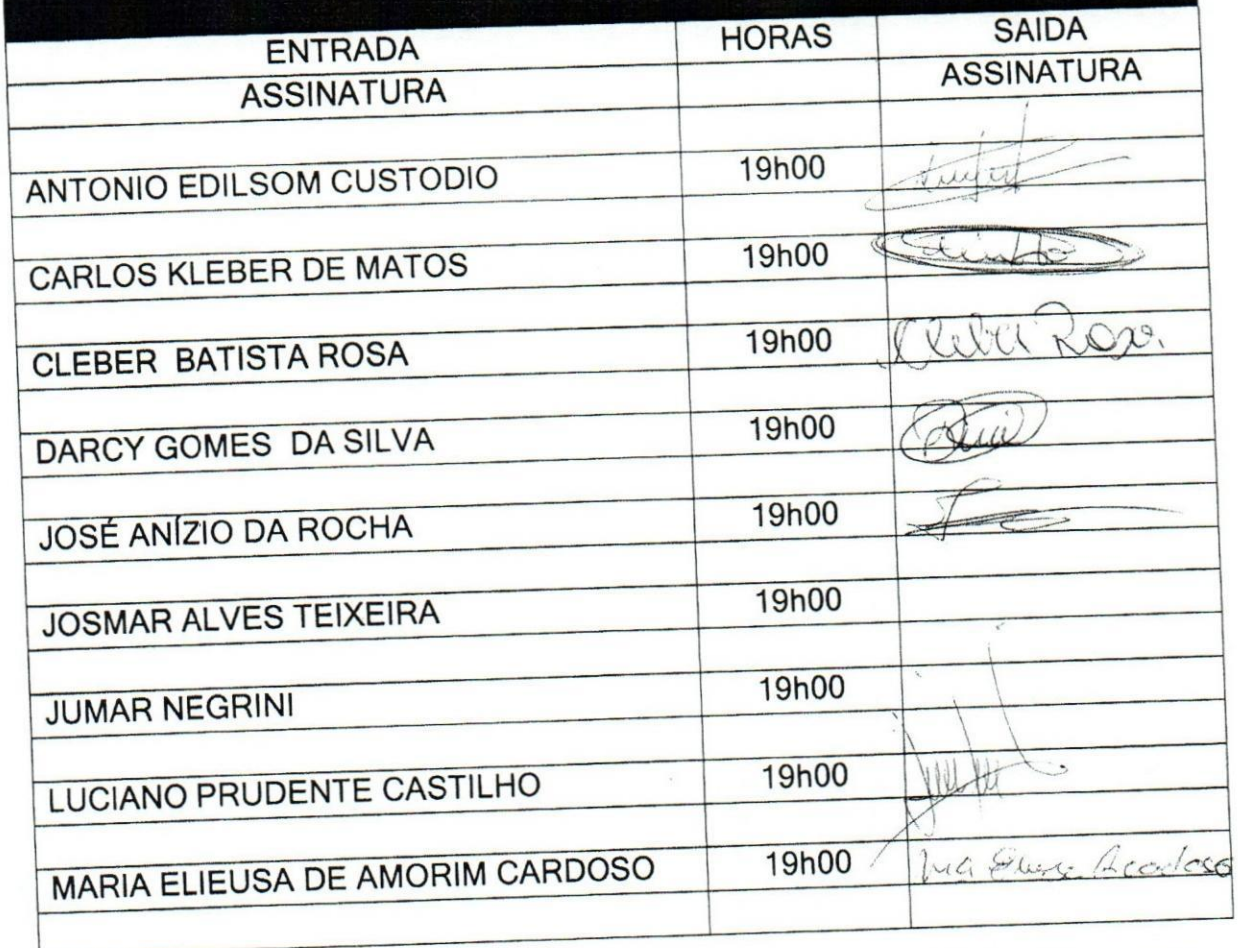 ENTRADA HORAS SAIDA
ASSINATURA ASSINATURA
ANTONIO EDILSOM CUSTODIO 19h00
CARLOS KLEBER DE MATOS 19h00
CLEBER BATISTA ROSA 19h00 Cleber Rosa
DARCY GOMES DA SILVA 19h00
JOSÉ ANÍZIO DA ROCHA 19h00
JOSMAR ALVES TEIXEIRA 19h00
JUMAR NEGRINI 19h00
LUCIANO PRUDENTE CASTILHO 19h00
MARIA ELIEUSA DE AMORIM CARDOSO 19h00